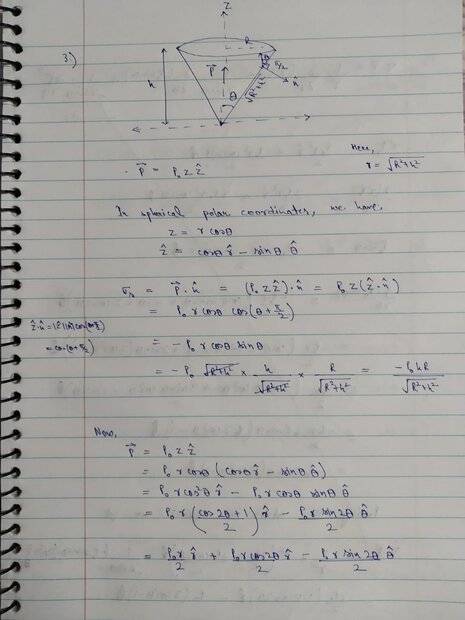 3.)
z
R
h
P⃗
θ
θ
π/2
n̂
√R²+h²
Here,
r = √R²+h²
P⃗ = P₀ z ẑ
In spherical polar coordinates, we have,
z = r cosθ
ẑ = cosθ r̂ − sinθ θ̂
= P⃗ · n̂ = (P₀ z ẑ) · n̂ = P₀ z (ẑ · n̂)
= P₀ r cosθ cos(θ + π/2)
ẑ·n̂ = |ẑ| |n̂| cos(θ+π/2)
= cos(θ + π/2)
= − P₀ r cosθ sinθ
= − P₀ √R²+h² × h/√R²+h² × R/√R²+h² = −P₀hR/√R²+h²
Now,
P⃗ = P₀ z ẑ
= P₀ r cosθ (cosθ r̂ − sinθ θ̂)
= P₀ r cos²θ r̂ − P₀ r cosθ sinθ θ̂
= P₀ r ((cos2θ + 1)/2) r̂ − (P₀ r sin2θ)/2 θ̂
= P₀r/2 r̂ + P₀ r cos2θ/2 r̂ − P₀ r sin2θ/2 θ̂